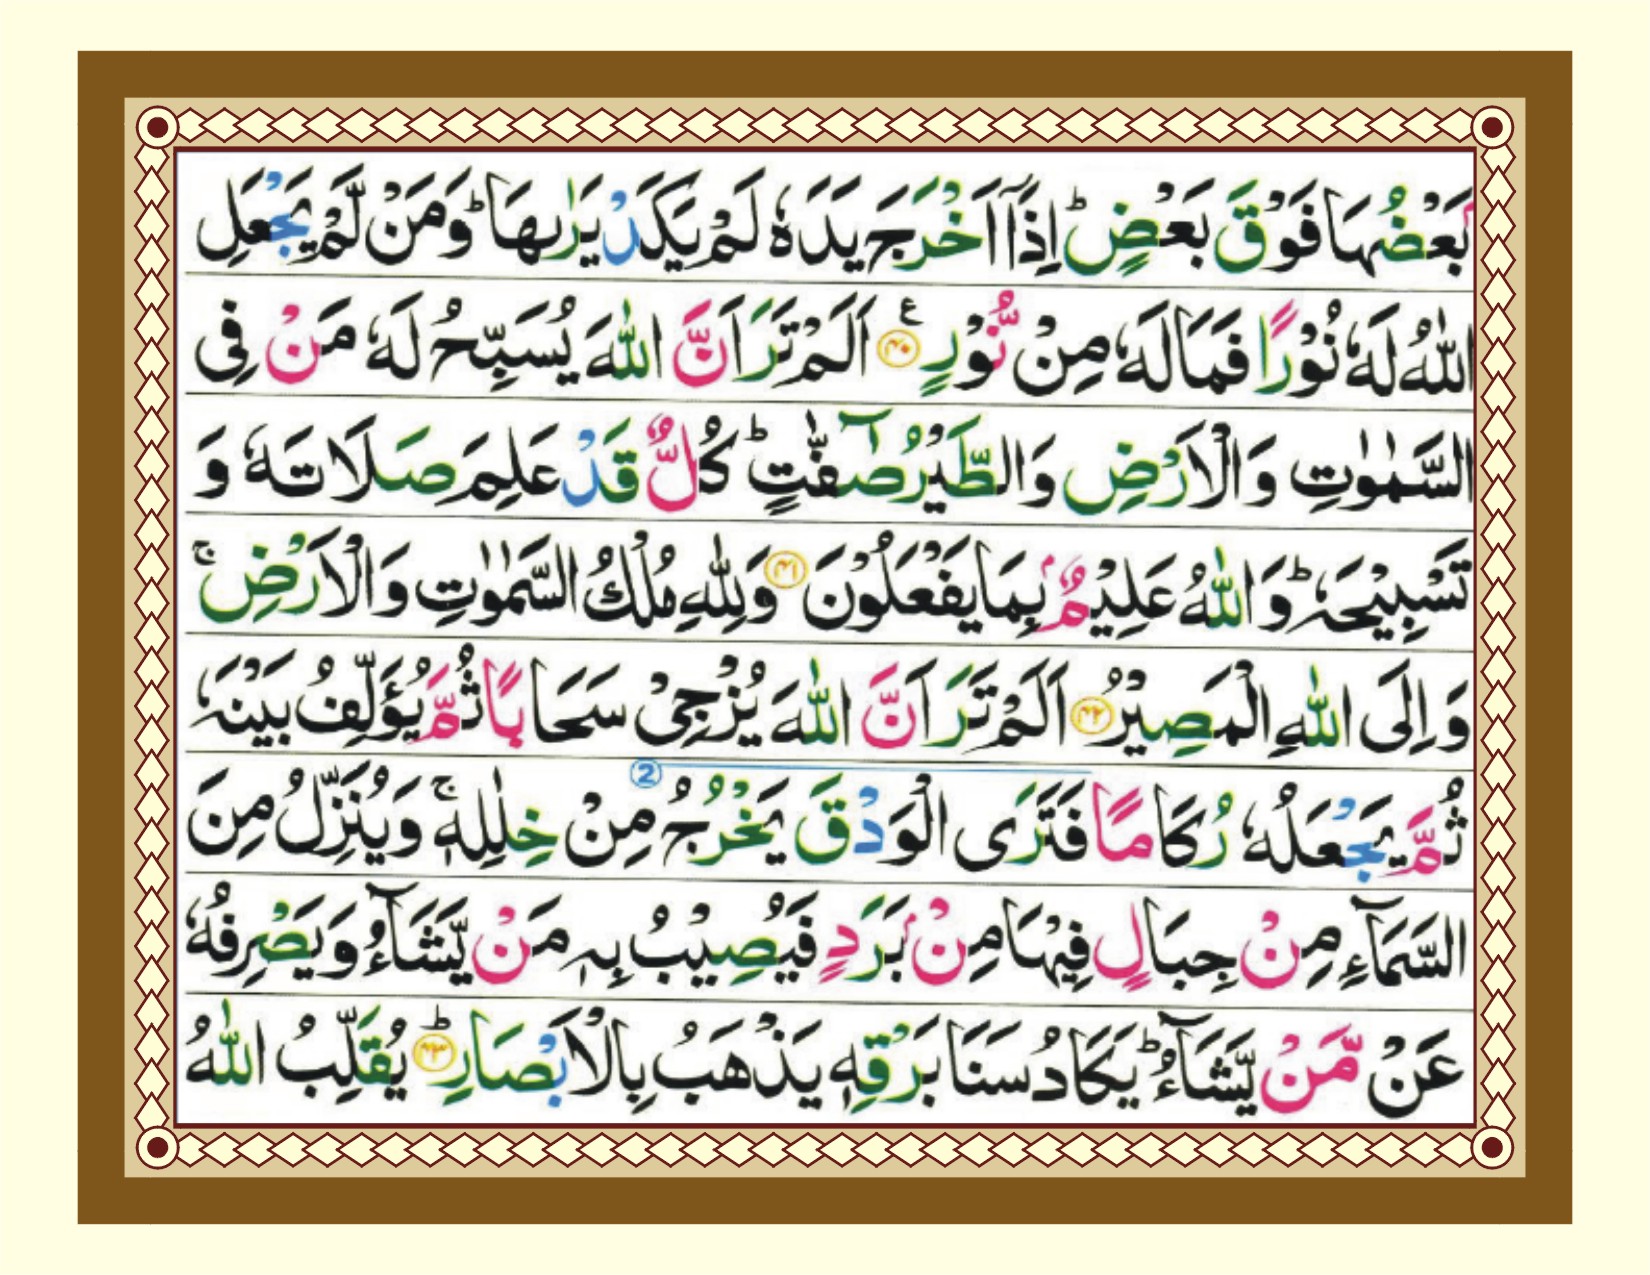 بَعْضُهَا فَوْقَ بَعْضٍ ؕ اِذَاۤ اَخْرَجَ يَدَهٗ لَمْ يَكَدْ يَرٰىهَا ؕ وَمَنْ لَّمْ يَجْعَلِ
اللّٰهُ لَهٗ نُوْرًا فَمَا لَهٗ مِنْ نُّوْرٍ ﴿۴۰﴾ ع اَلَمْ تَرَ اَنَّ اللّٰهَ يُسَبِّحُ لَهٗ مَنْ فِى
السَّمٰوٰتِ وَالْاَرْضِ وَالطَّيْرُ صٰٓفّٰتٍ ؕ كُلٌّ قَدْ عَلِمَ صَلَاتَهٗ وَ
تَسْبِيْحَهٗ ؕ وَاللّٰهُ عَلِيْمٌۢ بِمَا يَفْعَلُوْنَ ﴿۴۱﴾ وَلِلّٰهِ مُلْكُ السَّمٰوٰتِ وَالْاَرْضِ ۚ
وَاِلَى اللّٰهِ الْمَصِيْرُ ﴿۴۲﴾ اَلَمْ تَرَ اَنَّ اللّٰهَ يُزْجِىْ سَحَابًا ثُمَّ يُؤَلِّفُ بَيْنَهٗ
②
ثُمَّ يَجْعَلُهٗ رُكَامًا فَتَرَى الْوَدْقَ يَخْرُجُ مِنْ خِلٰلِهٖ ۚ وَيُنَزِّلُ مِنَ
السَّمَآءِ مِنْ جِبَالٍ فِيْهَا مِنْۢ بَرَدٍ فَيُصِيْبُ بِهٖ مَنْ يَّشَآءُ وَيَصْرِفُهٗ
عَنْ مَّنْ يَّشَآءُ ؕ يَكَادُ سَنَا بَرْقِهٖ يَذْهَبُ بِالْاَبْصَارِ ؕ ﴿۴۳﴾ يُقَلِّبُ اللّٰهُ